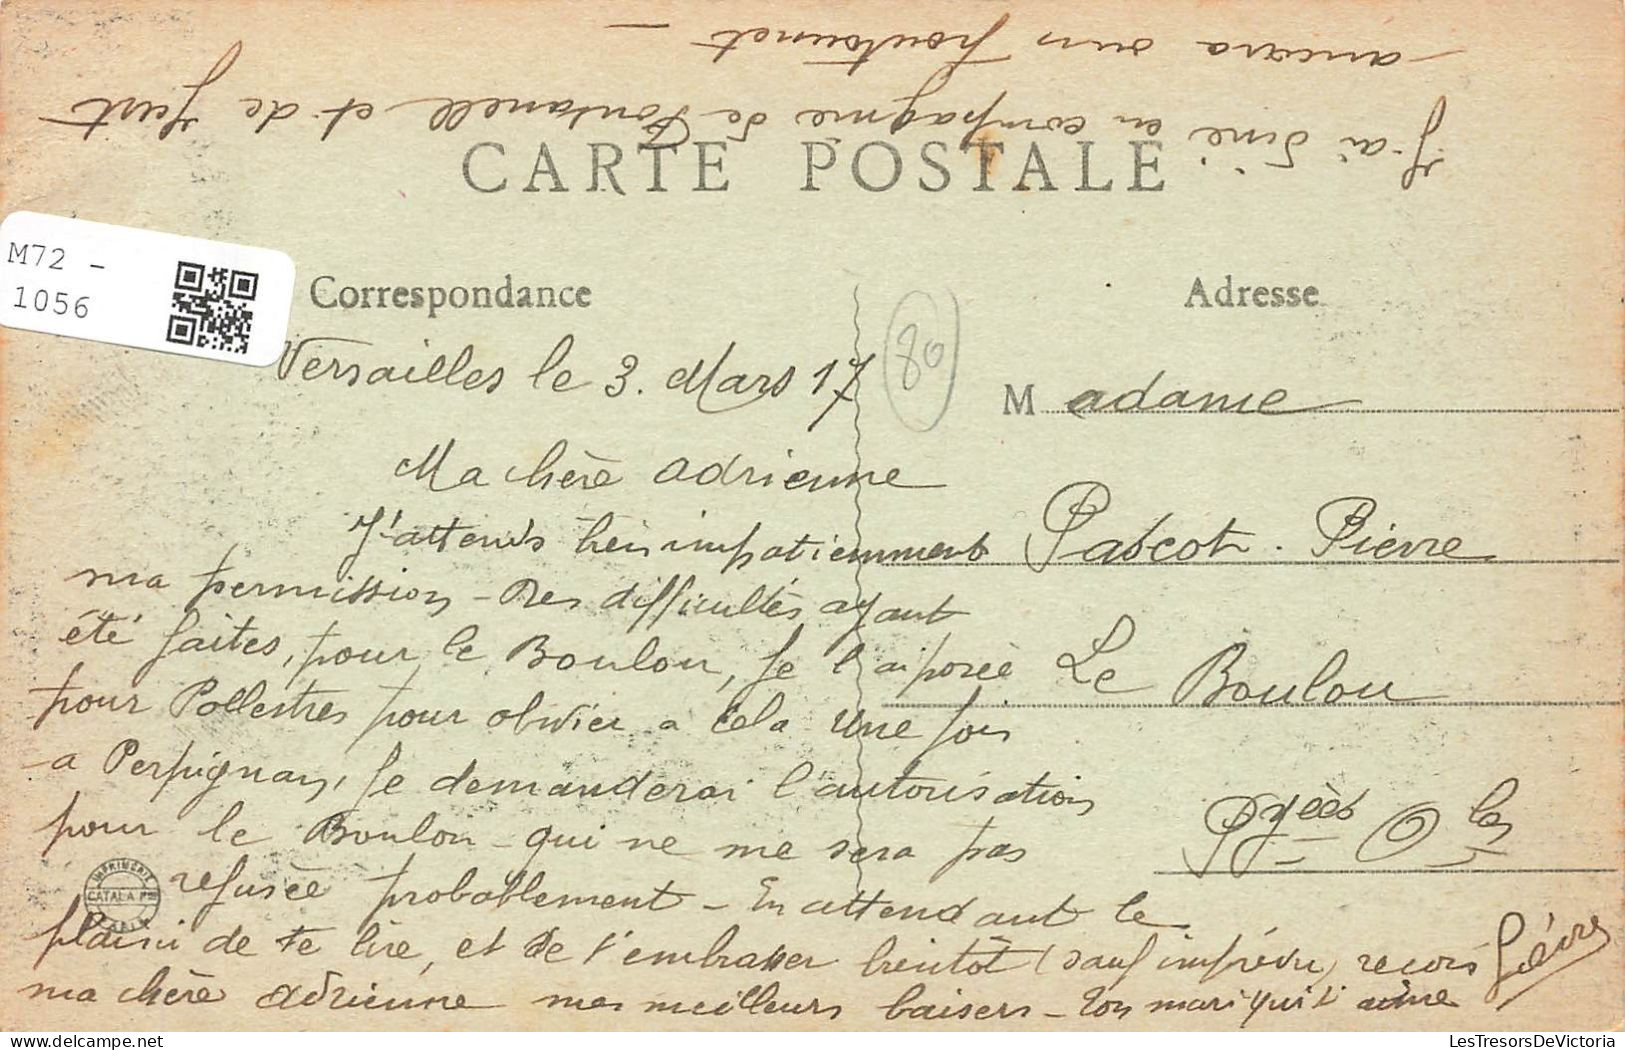 J'ai diné en compagnie de Fontanell et de Just
ancara oun poutounet -
CARTE POSTALE
M72 -
1056
Correspondance
Adresse
80
Versailles le 3. Mars 17
Madame
Ma chère adrienne
Pascot. Pierre
J'attends bien impatiemment
ma permission - Des difficultés ayant
été faites, pour le Boulou, je l'ai posée
Le Boulou
pour Pollestres pour obvier a cela une fois
a Perpignan, je demanderai l'autorisation
pour le Boulou - qui ne me sera pas
Pyées Oles
refusée probablement - En attendant le
IMPRIMERIE
CATALA FRES
PARIS
plaisir de te lire, et de t'embrasser bientôt (sauf imprévu) recois
ma chère adrienne mes meilleurs baisers - Ton mari qui t'aime
Pierre
LesTresorsDeVictoria